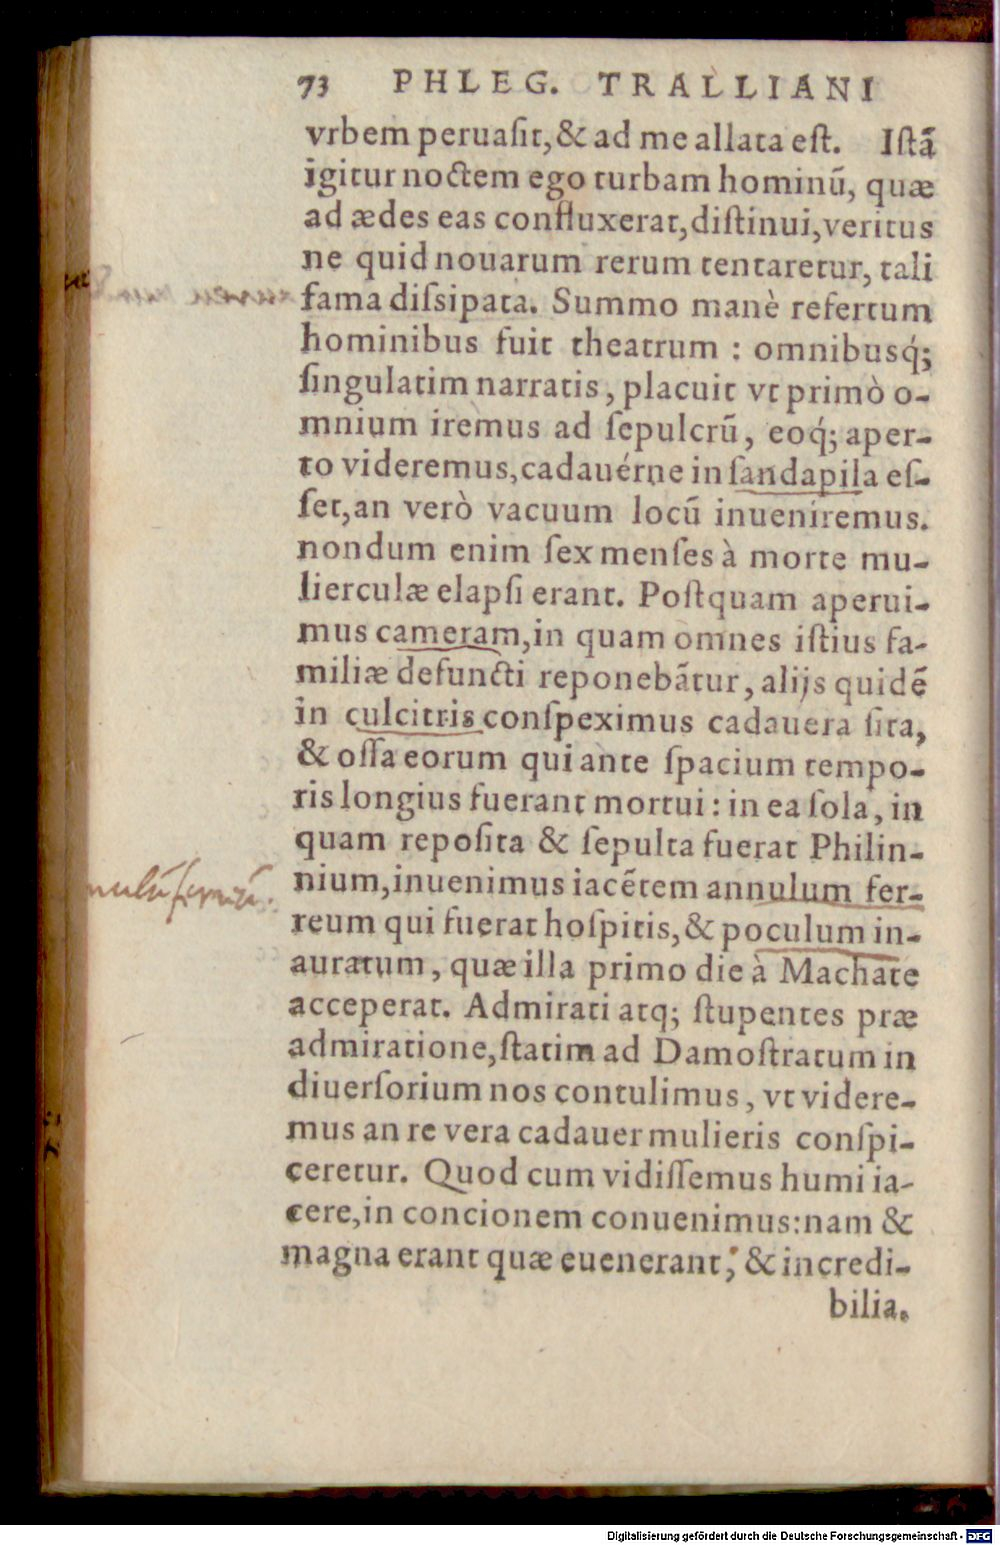 73 PHLEG. TRALLIANI
vrbem peruaſit, & ad me allata eſt. Iſtã
igitur noctem ego turbam hominũ, quæ
ad ædes eas confluxerat, diſtinui, veritus
ne quid nouarum rerum tentaretur, tali
fama diſsipata. Summo manè refertum
hominibus fuit theatrum : omnibusq́;
ſingulatim narratis, placuit vt primò o-
mnium iremus ad ſepulcrũ, eoq́; aper-
to videremus, cadauérne in ſandapila eſ-
ſet, an verò vacuum locũ inueniremus.
nondum enim ſex menſes à morte mu-
lierculæ elapſi erant. Poſtquam aperui-
mus cameram, in quam omnes iſtius fa-
miliæ defuncti reponebãtur, alijs quidẽ
in culcitris conſpeximus cadauera ſita,
& oſſa eorum qui ante ſpacium tempo-
ris longius fuerant mortui : in ea ſola, in
quam repoſita & ſepulta fuerat Philin-
nium, inuenimus iacẽtem annulum fer-
reum qui fuerat hoſpitis, & poculum in-
auratum, quæ illa primo die à Machate
acceperat. Admirati atq; ſtupentes præ
admiratione, ſtatim ad Damoſtratum in
diuerſorium nos contulimus, vt videre-
mus an re vera cadauer mulieris conſpi-
ceretur. Quod cum vidiſſemus humi ia-
cere, in concionem conuenimus: nam &
magna erant quæ euenerant, & incredi-
bilia.
Digitalisierung gefördert durch die Deutsche Forschungsgemeinschaft - DFG